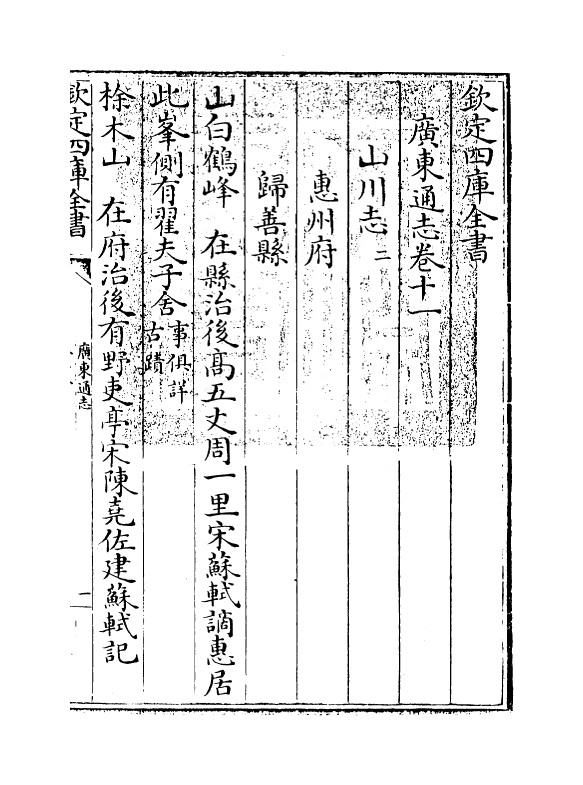 欽定四庫全書
廣東通志卷十一
山川志二
惠州府
歸善縣
山白鶴峰　在縣治後髙五丈周一里宋蘇軾謫惠居
此峯側有翟夫子舍事俱詳古蹟
梌木山　在府治後有野吏亭宋陳堯佐建蘇軾記
欽定四庫全書
廣東通志